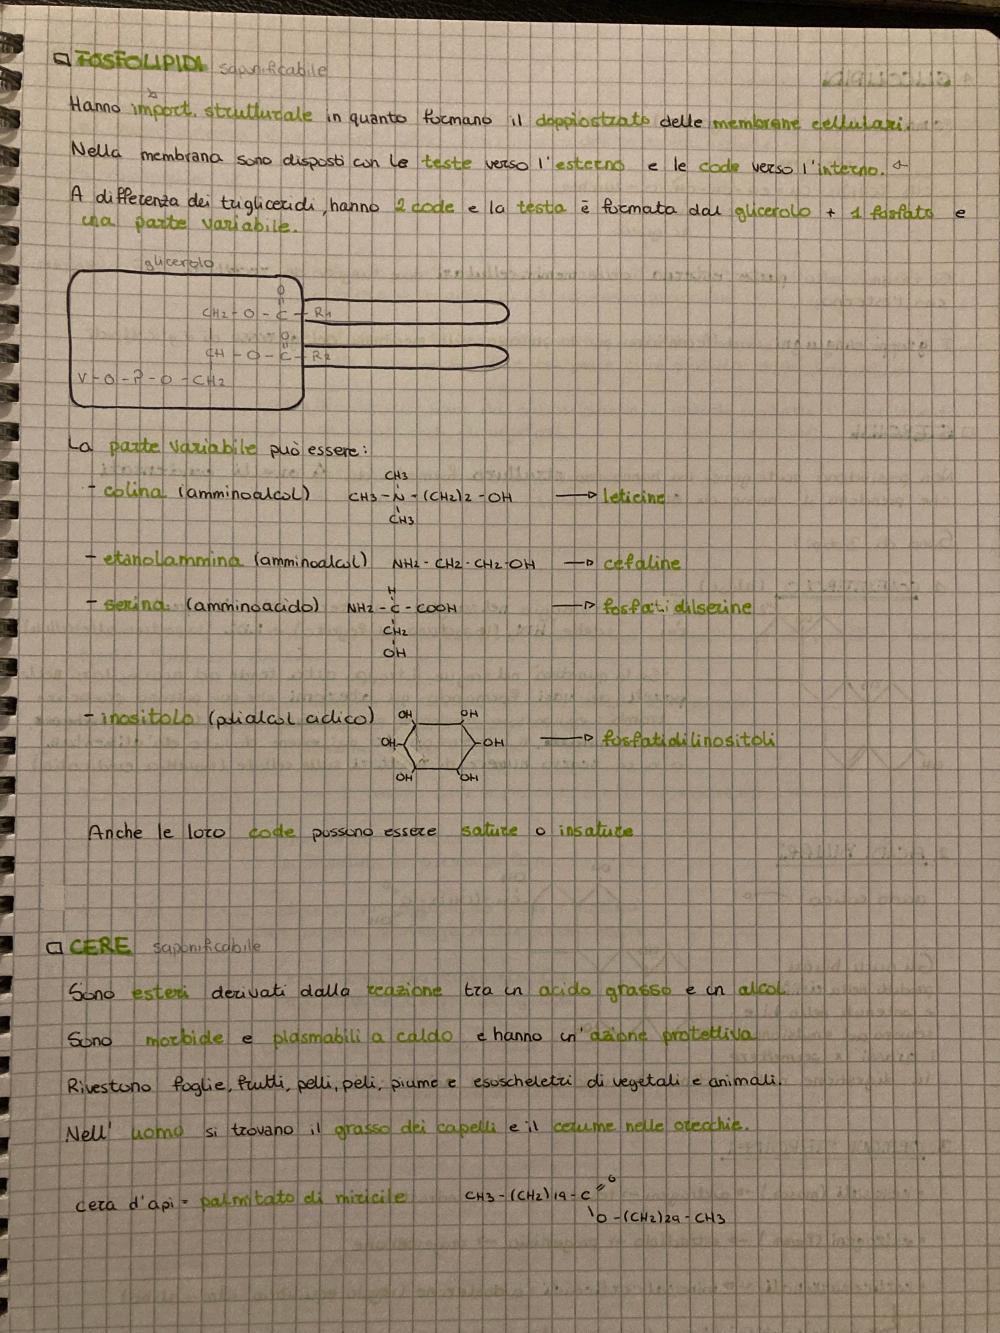 FOSFOLIPIDI saponificabile
Hanno import. strutturale in quanto formano il doppiostrato delle membrane cellulari.
Nella membrana sono disposti con le teste verso l'esterno e le code verso l'interno.
A differenza dei trigliceridi, hanno 2 code e la testa è formata dal glicerolo + 1 fosfato e
una parte variabile.
glicerolo
O
CH2 - O - C - R1
O
CH - O - C - R2
V - O - P - O - CH2
La parte variabile può essere:
CH3
- colina (amminoalcol) CH3 - N - (CH2)2 - OH → leticine
CH3
- etanolammina (amminoalcol) NH2 - CH2 - CH2 - OH → cefaline
H
- serina (amminoacido) NH2 - C - COOH → fosfatidilserine
CH2
OH
- inositolo (polialcol ciclico) OH OH → fosfatidilinositoli
OH OH
OH OH
Anche le loro code possono essere sature o insature
CERE saponificabile
Sono esteri derivati dalla reazione tra un acido grasso e un alcol
Sono morbide e plasmabili a caldo e hanno un'azione protettiva
Rivestono foglie, frutti, pelli, peli, piume e esoscheletri di vegetali e animali.
Nell' uomo si trovano il grasso dei capelli e il cerume nelle orecchie.
cera d'api = palmitato di miricile CH3 - (CH2)14 - C = O
O - (CH2)29 - CH3